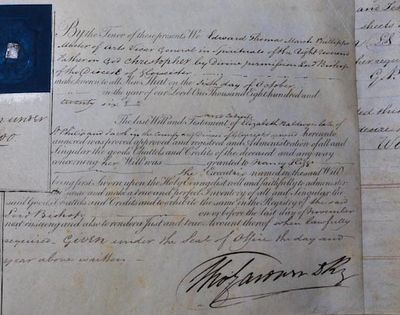 By the Tenor of these presents We Edward Thomas March Phillipps
Master of Arts Vicar General in Spirituals of the Right Reverend
Father in God Christopher by Divine permission Lord Bishop
of the Diocese of Gloucester
make known to all Men That on the Sixth day of October
in the year of our Lord One Thousand Eight hundred and
twenty six
The last Will and Testament of Elizabeth late of
St Philip and Jacob in the County of deceased hereunto
annexed was proved approved and registered and Administration of all and
Singular the goods Chattels and Credits of the deceased and any way
concerning her Will was granted to Nancy
The Executrix named in the said Will
being first Sworn upon the Holy Evangelists well and faithfully to administer
the same and make a true and perfect Inventory of all and Singular the
said Goods Chattels and Credits and to exhibit the same in the Registry of the said
Lord Bishop on or before the last day of November
next ensuing and also to render a Just and true Account thereof when lawfully
required Given under the Seal of Office the day and
year above written
under